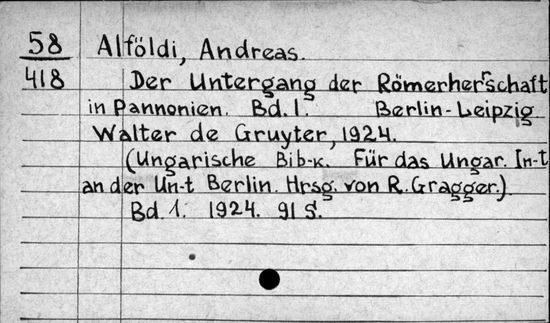 58 Alföldi, Andreas.
418 Der Untergang der Römerherrschaft
in Pannonien. Bd. I. Berlin-Leipzig
Walter de Gruyter, 1924.
(Ungarische Bib-к. Für das Ungar. In-t
an der Un-t Berlin. Hrsg. von R. Gragger.)
Bd. 1. 1924. 91 S.